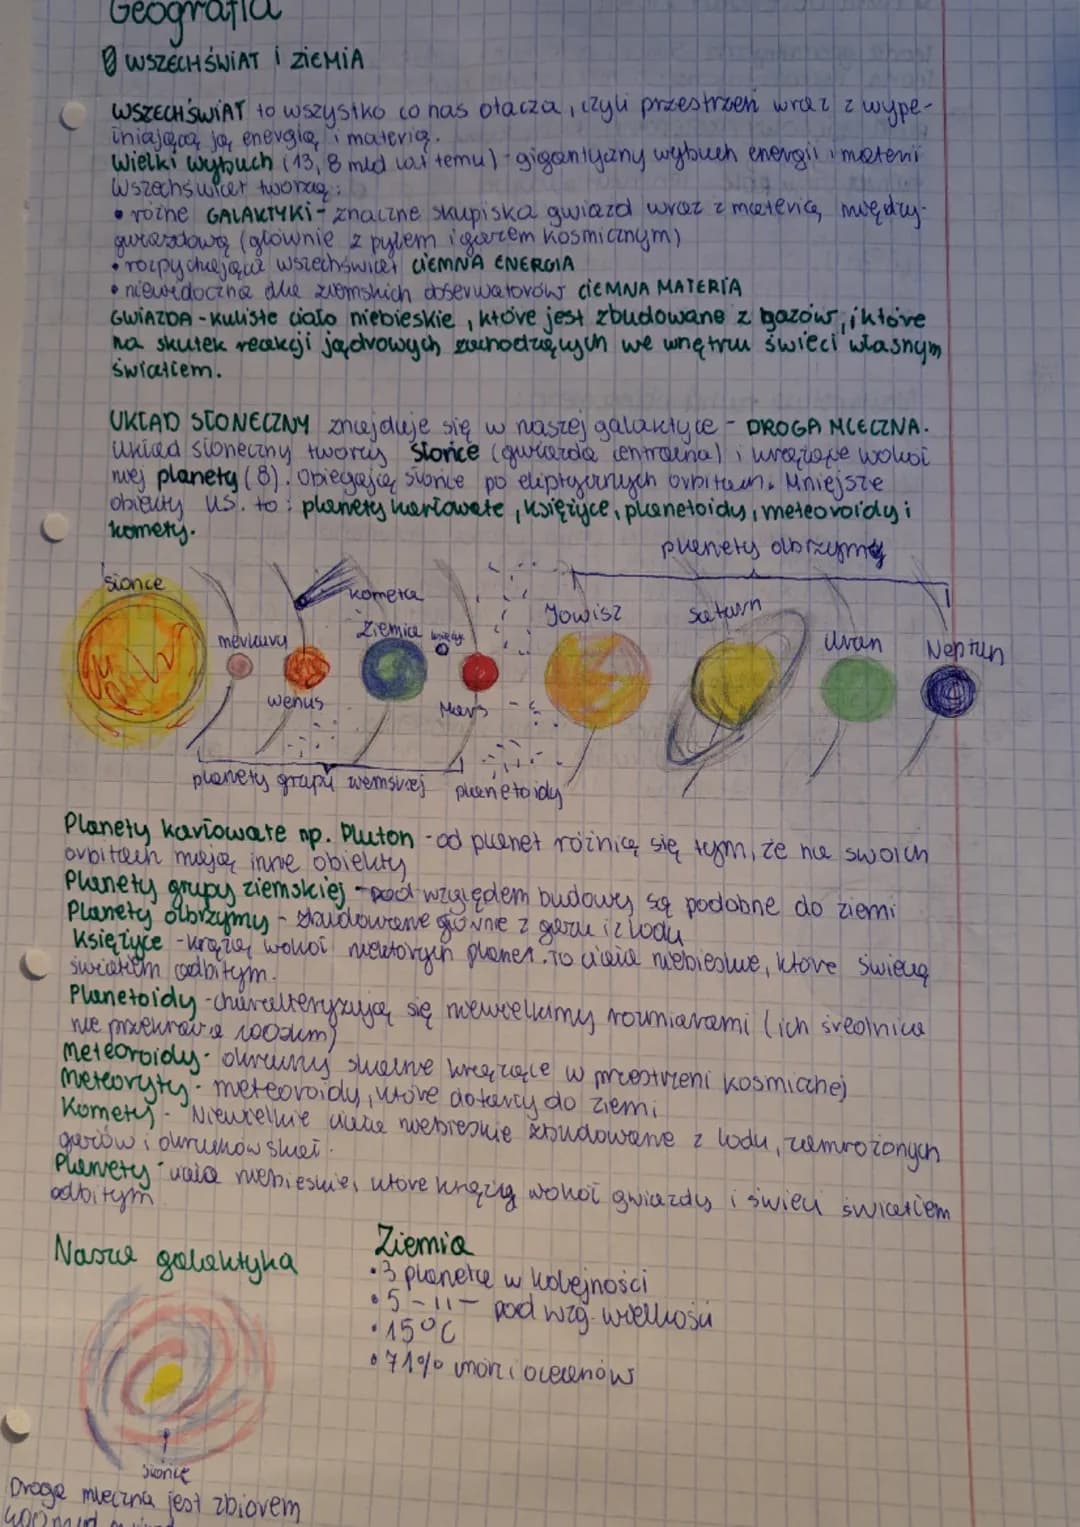 Geografia
WSZECHŚWIAT i ZIEMIA
WSZECHŚWIAT to wszystko co nas otacza, czyli przestrzeń wraz z wype-
łniającą ją energią i materią.
Wielki wybuch (13,8 mld lat temu) - gigantyczny wybuch energii i materii
Wszechświat tworzą:
• różne GALAKTYKI - znaczne skupiska gwiazd wraz z materią między-
gwiazdową (głównie z pyłem i gazem kosmicznym)
• rozpychająca wszechświat CIEMNA ENERGIA
• niewidoczna dla ziemskich obserwatorów CIEMNA MATERIA
GWIAZDA - kuliste ciało niebieskie, które jest zbudowane z gazów, i które
na skutek reakcji jądrowych zachodzących we wnętrzu świeci własnym
światłem.
UKŁAD SŁONECZNY znajduje się w naszej galaktyce - DROGA MLECZNA.
Układ słoneczny tworzy Słońce (gwiazda centralna) i krążące wokół
niej planety (8). Obiegają słońce po eliptycznych orbitach. Mniejsze
obiekty U.S. to: planety karłowate, księżyce, planetoidy, meteoroidy i
komety.
planety olbrzymy
słońce
kometa
merkury
Ziemia
księżyc
Jowisz
Saturn
Uran
Neptun
wenus
Mars
planety grupy ziemskiej
planetoidy
Planety karłowate np. Pluton - od planet różnią się tym, że na swoich
orbitach mają inne obiekty
Planety grupy ziemskiej - pod względem budowy są podobne do ziemi
Planety olbrzymy - zbudowane głównie z gazu i z lodu
Księżyce - krążą wokół niektórych planet. To ciała niebieskie, które świecą
światłem odbitym.
Planetoidy - charakteryzują się niewielkimy rozmiarami (ich średnica
nie przekracza 1000km)
Meteoroidy - okruchy skalne krążące w przestrzeni kosmicznej
Meteoryty - meteoroidy, które dotarły do ziemi
Komety - Niewielkie ciała niebieskie zbudowane z lodu, zamrożonych
gazów i okruchów skał.
Planety - ciała niebieskie, które krążą wokół gwiazdy i świecą światłem
odbitym
Nasza galaktyka
Ziemia
• 3 planeta w kolejności
• 5 -11- pod wzg. wielkości
• 15°C
• 71% mórz i oceanów
słońce
Droga mleczna jest zbiorem
400 mld